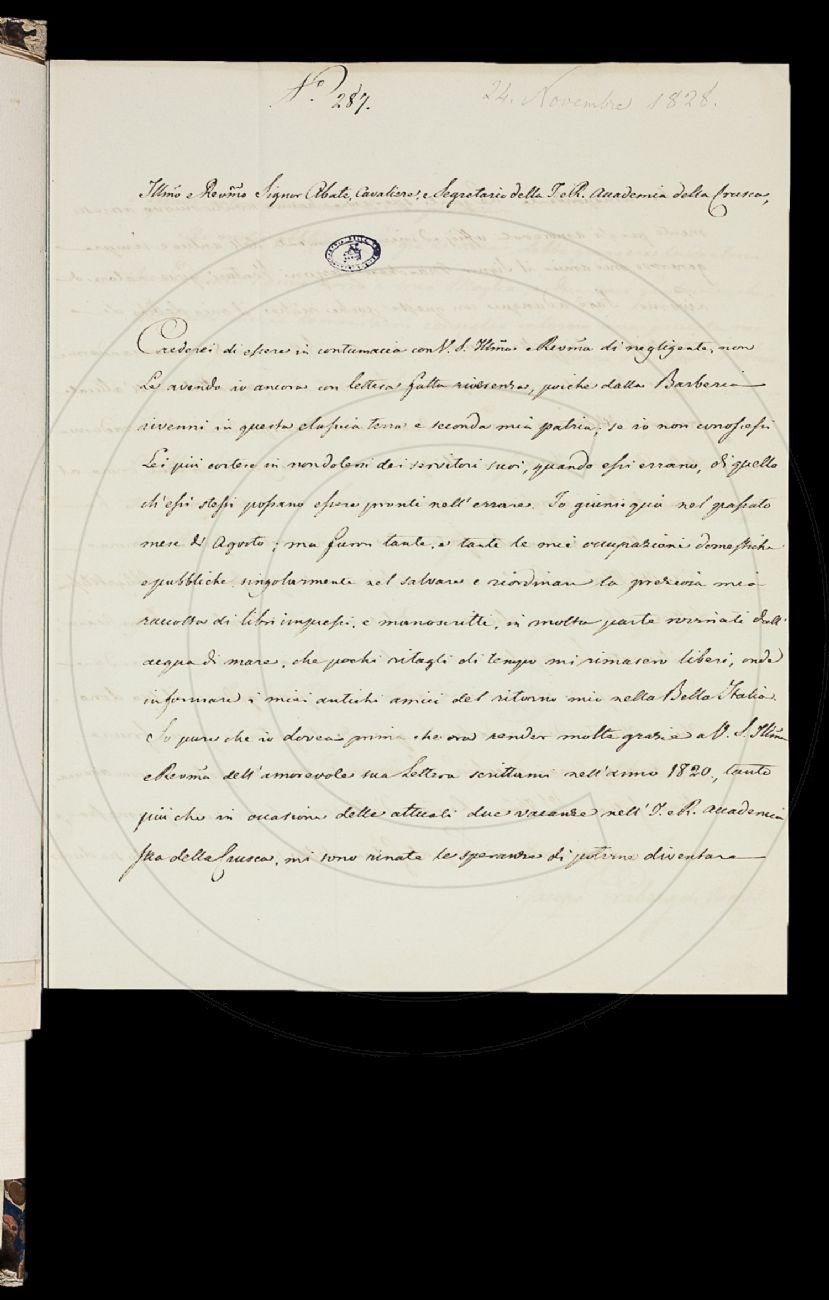 N.º 287.
24. Novembre 1828.
Illm̃o e Revm̃o Signor Abate, Cavaliere, e Segretario della I. e R. Accademia della Crusca,
Crederei di essere in contumacia con V. S. Illm̃a e Revm̃a di negligente, non
Le avendo io ancora con lettera fatta riverenza, poichè dalla Barberia
rivenni in questa classica terra e seconda mia patria; se io non conoscessi
Lei più cortese in non dolersi dei servitori suoi, quando essi errano, di quello
ch'essi stessi possano essere pronti nell'errare. Io giunsi quà nel passato
mese di Agosto; ma furon tante, e tante le mie occupazioni domestiche
e pubbliche singolarmente nel salvare e riordinare la preziosa mia
raccolta di libri impressi, e manoscritti, in molta parte rovinati dall'
acqua di mare, che pochi ritagli di tempo mi rimasero liberi, onde
informare i miei antichi amici del ritorno mio nella Bella Italia.
So pure che io dovea prima che ora render molte grazie a V. S. Illm̃a
e Revm̃a dell'amorevole sua Lettera scrittami nell'anno 1820., tanto
più che in occasione delle attuali due vacanze nell'I. e R. Accademia
della Crusca, mi sono rinate le speranze di poterne diventare